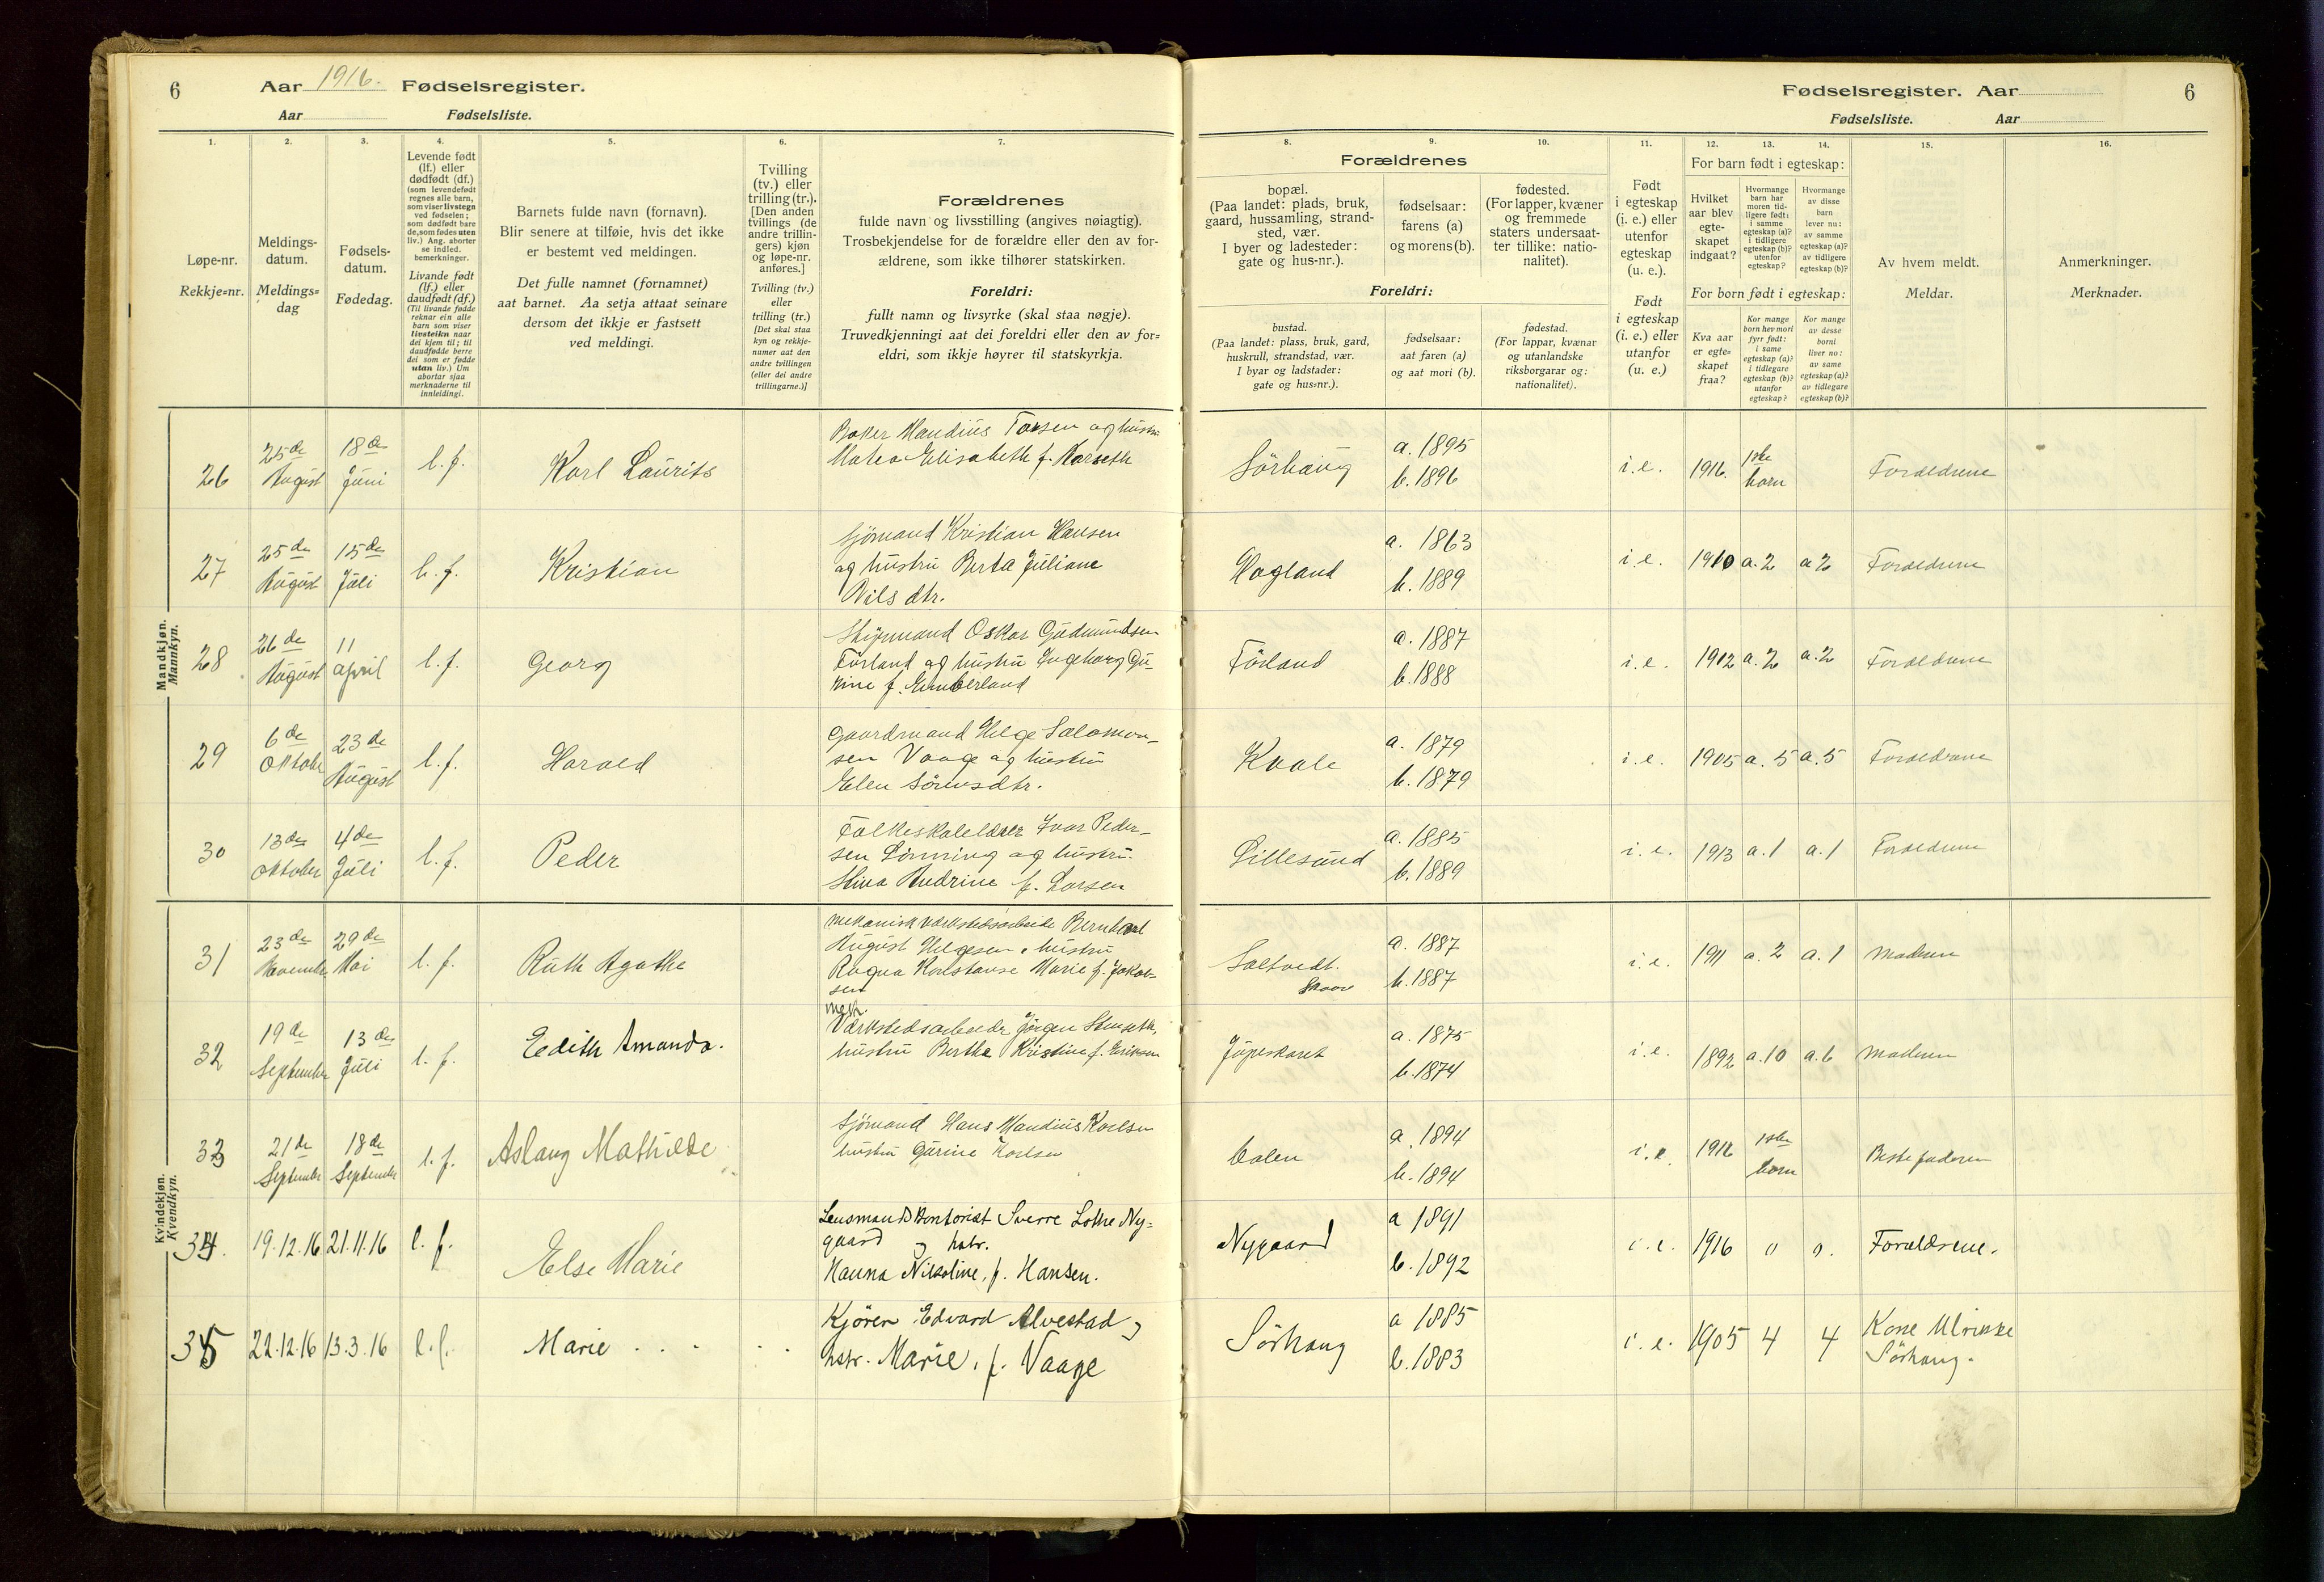 6 Aar 1916. Fødselsregister.
Aar Fødselsliste.
Fødselsregister. Aar 6
Fødselsliste. Aar
1. 2. 3. 4. 5. 6. 7. 8. 9. 10. 11. 12. 13. 14. 15. 16.
Løpe-nr.
Rekkje=nr.
Meldings-
datum.
Meldings=
dag
Fødsels-
datum.
Fødedag.
Levende født
(lf.) eller
dødfødt (df.)
(som levendefødt
regnes alle barn,
som viser livstegn
ved fødselen;
som dødfødt bare
de, som fødes uten
liv.) Ang. aborter
se indled.
bemerkninger.
Livande født
(lf.) eller
daudfødt (df.)
(Til livande fødde
reknar ein alle
barn som viser
livsteikn naar
dei kjem til; til
daudfødde berre
dei som er fødde
utan liv.) Um
abortar sjaa
merknaderne til
innleidingi.
Barnets fulde navn (fornavn).
Blir senere at tilføie, hvis det ikke
er bestemt ved meldingen.
Det fulle namnet (fornamnet)
aat barnet. Aa setja attaat seinare
dersom det ikkje er fastsett
ved meldingi.
Tvilling
(tv.) eller
trilling (tr.).
[Den anden
tvillings (de
andre trillin-
gers) kjøn
og løpe-nr.
anføres.]
Tvilling (tv.)
eller
trilling (tr.)
[Det skal staa
kyn og rekkje-
numer aat den
andre tvillingen
(eller dei andre
trillingarne.)]
Forældrenes
fulde navn og livsstilling (angives nøiagtig).
Trosbekjendelse for de forældre eller den av for-
ældrene, som ikke tilhører statskirken.
Foreldri:
fullt namn og livsyrke (skal staa nøgje).
Truvedkjenningi aat dei foreldri eller den av for=
eldri, som ikkje høyrer til statskyrkja.
Forældrenes
bopæl.
(Paa landet: plads, bruk,
gaard, hussamling, strand-
sted, vær.
I byer og ladesteder:
gate og hus-nr.).
fødselsaar:
farens (a)
og morens (b).
fødested.
(For lapper, kvæner
og fremmede
staters undersaat-
ter tillike: natio-
nalitet).
Foreldri:
bustad.
(Paa landet: plass, bruk, gard,
huskrull, strandstad, vær.
I byar og ladstader:
gate og hus=nr.).
fødselsaar:
aat faren (a)
og aat mori (b).
fødestad.
(For lappar, kvænar
og utanlandske
riksborgarar og:
nationalitet).
Født
i egteskap
(i. e.) eller
utenfor
egteskap
(u. e.).
Født
i egteskap
(i. e.) eller
utanfor
egteskap
(u. e.)
For barn født i egteskap:
Hvilket
aar blev
egte-
skapet
indgaat?
Hvormange
barn har
moren tid-
ligere født:
i samme
egteskap (a)?
i tidligere
egteskap (b)?
utenfor
egteskap?
Hvormange
av disse
barn
lever nu:
av samme
egteskap (a)?
av tidligere
egteskap (b)?
For born født i egteskap:
Kva aar
er egte=
skapet
fraa?
Kor mange
born hev mori
fyrr født:
i same
egteskap (a)?
i tidlegare
egteskap (b)?
utanfor
egteskap?
Kor mange
av desse
borni
liver no:
av same
egteskap (a)?
av tidlegare
egteskap (b)?
Av hvem meldt.
Meldar.
Anmerkninger.
Merknader.
Mandkjøn.
Mannkyn.
26 25de August 18de Juni l.f. Karl Laurits
Baker Mandius Torsen og hustru
Matea Elisabeth f.
Sörhaug a. 1895 b. 1896 i.e. 1916. 1ste barn Foraeldrene
27 25de August 15de Juli l.f. Kristian
Sjömand Kristian Hansen
og hustru Berta Juliane
Nilsdtr.
Hagland a. 1863 b. 1889 i.e. 1910 a. 2 a 2 Foraeldrene
28 26de August 11 april l.f. Georg
Styrmand Oskar Gudmundsen
Förland og hustru Ingeborg Gu-
rine f. Emberland
Förland a. 1887 b. 1888 i.e. 1912 a. 2 a. 2 Foraeldrene
29 6de Oktober 23de August l.f. Harald
Gaardmand Helge Salomon-
sen Vaage og hustru
Elen Sörensdtr.
Kvale a. 1879 b. 1879 i.e. 1905 a. 5 a. 5 Foraeldrene
30 13de Oktober 4de Juli l.f. Peder
Folkeskolelærer Ivar Peder-
sen Lönning og hustru
Stina Andrine f. Larsen
Lillesund a. 1885 b. 1889 i.e. 1913 a. 1 a. 1 Foraeldrene
Kvindekjøn.
Kvendkyn.
31 23de November 29de Mai l.f. Ruth Agathe
Mekanisk værkstedsarbeide Bernhard
August Helgesen, hustru
Ragna Konstanse Marie f. Jakob-
sen
Saltvedt. Skaare a. 1887 b. 1887 i.e. 1911 a. 2 a. 1 Moderen
32 19de September 13de Juli l.f. Eedith Amanda.
mek.
Værkstedsarbeider Jörgen Stenseth,
hustru Berthe Kristine f. Eriksen
Jupeskaret a. 1875 b. 1874 i.e. 1892 a. 10 a. 6 Moderen
33 21de September 18de September l.f. Aslaug Mathilde
Sjömand Hans Mandius Koelsen
hustru Gurine Koelsen
a. 1894 b. 1894 i.e. 1916 1ste barn Bestefaderen
34. 19.12.16 21.11.16 l.f. Else Marie
Lensmandskontorist Sverre Lothe Ny=
gaard og hstr.
Hanna Nikoline, f. Hansen.
Nygaard a 1891 b. 1892 i.e. 1916 0 0. Forældrene.
35 22.12.16 13.3.16 l.f. Marie . . . . .
Kjörer Edvard Alvestad og
hstr. Marie, f. Vaage
Sörhaug a 1885 b. 1883 i.e. 1905 4 4 Kone Ulrikke
Sörhaug.